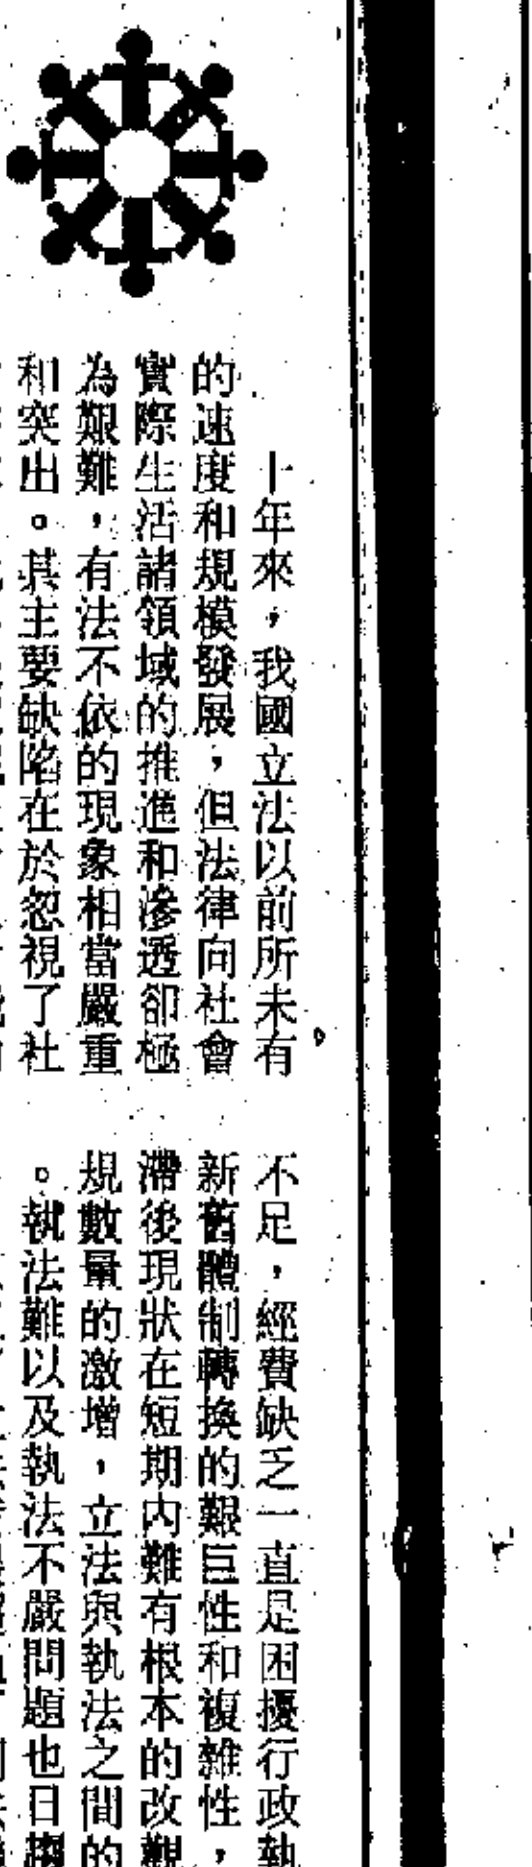 十年來，我國立法以前所未有
的速度和規模發展，但法律向社會
實際生活諸領域的推進和滲透卻極
為艱難，有法不依的現象相當嚴重
和突出。其主要缺陷在於忽視了社
不足，經費缺乏一直是困擾行政執
新舊體制轉換的艱巨性和複雜性，
滯後現狀在短期內難有根本的改觀
規數量的激增，立法與執法之間的
。執法難以及執法不嚴問題也日趨